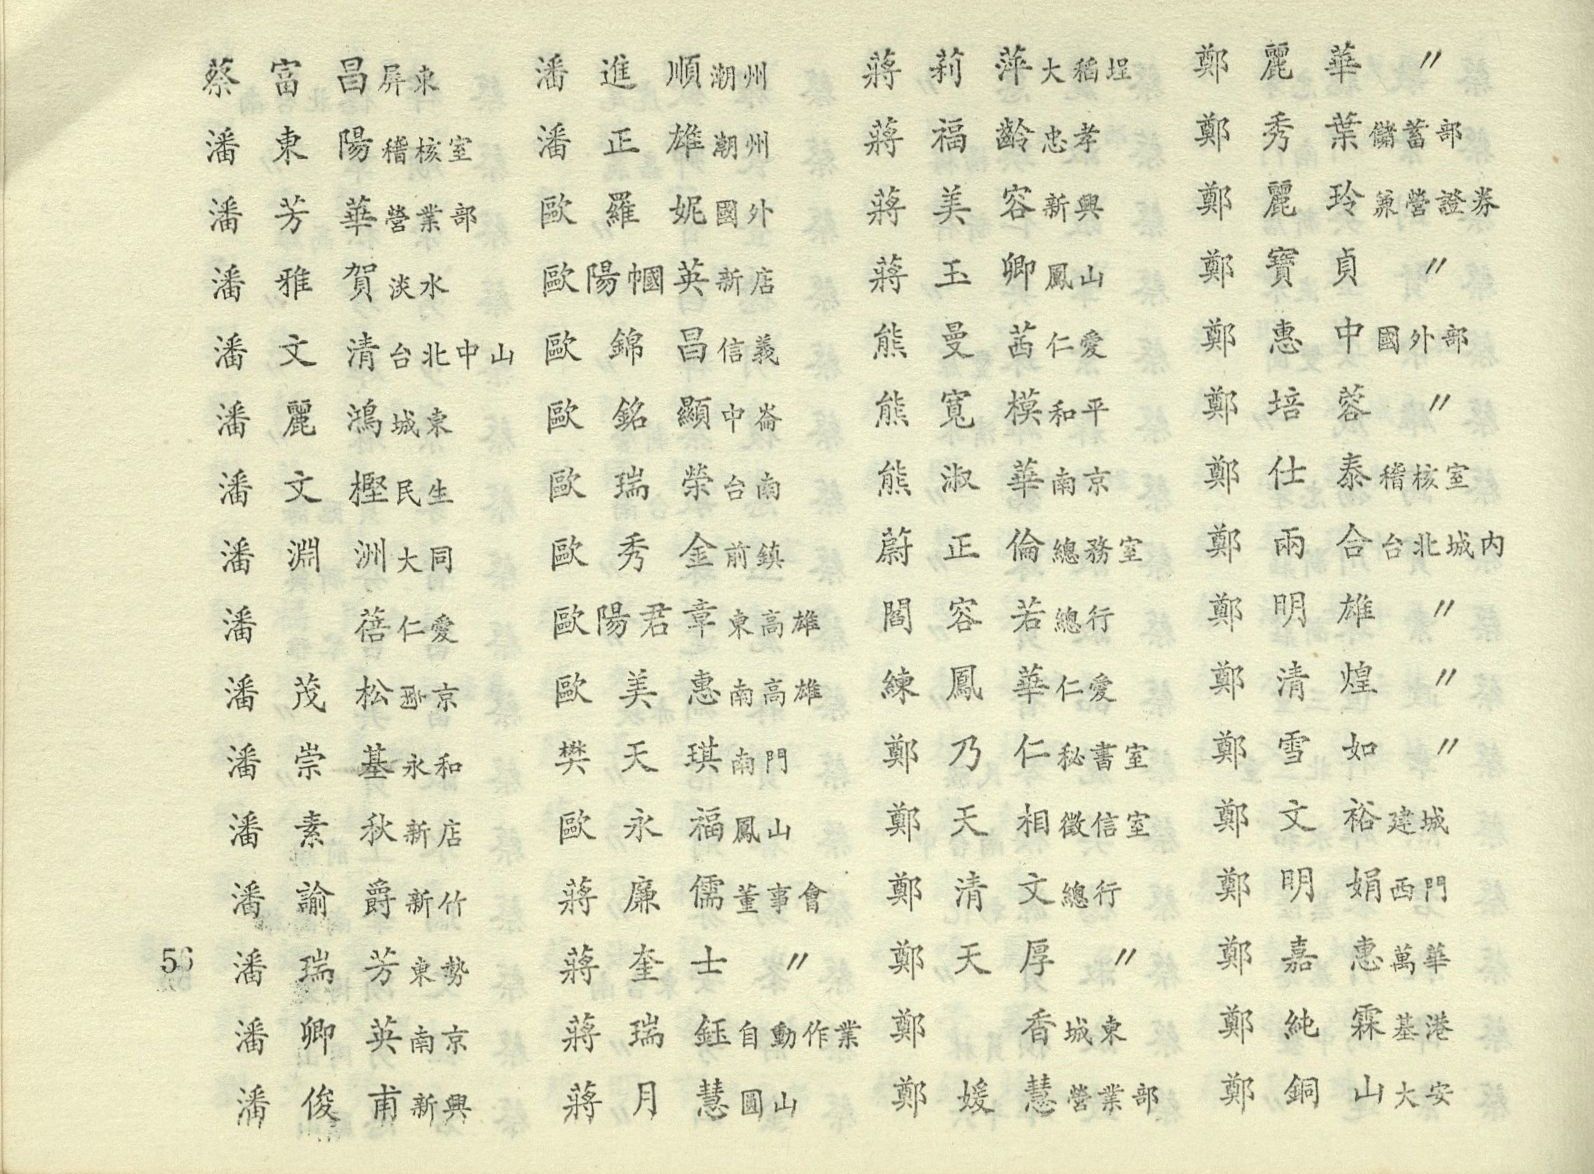 蔡富昌屏東
潘東陽稽核室
潘芳華營業部
潘雅賀淡水
潘文清台北中山
潘麗鴻城東
潘文樫民生
潘淵洲大同
潘蓓仁愛
潘茂松 京
潘崇基永和
潘素秋新店
潘諭爵新竹
潘瑞芳東勢
潘卿英南京
潘俊甫新興
潘進順潮州
潘正雄潮州
歐羅妮國外
歐陽幗英新店
歐錦昌信義
歐銘顯中崙
歐瑞榮台南
歐秀金前鎮
歐陽君章東高雄
歐美惠南高雄
樊天琪南門
歐永福鳳山
蔣廉儒董事會
蔣奎士〃
蔣瑞鈺自動作業
蔣月慧圓山
蔣莉萍大稻埕
蔣福齡忠孝
蔣美容新興
蔣玉卿鳳山
熊曼茜仁愛
熊寬模和平
熊淑華南京
蔚正倫總務室
閻容若總行
練鳳華仁愛
鄭乃仁秘書室
鄭天相徵信室
鄭清文總行
鄭天厚〃
鄭香城東
鄭媛慧營業部
鄭麗華〃
鄭秀葉儲蓄部
鄭麗玲兼營證券
鄭寶貞〃
鄭惠中國外部
鄭培蓉〃
鄭仕泰稽核室
鄭兩合台北城內
鄭明雄〃
鄭清煌〃
鄭雪如〃
鄭文裕建城
鄭明娟西門
鄭嘉惠萬華
鄭純霖基港
鄭銅山大安
56